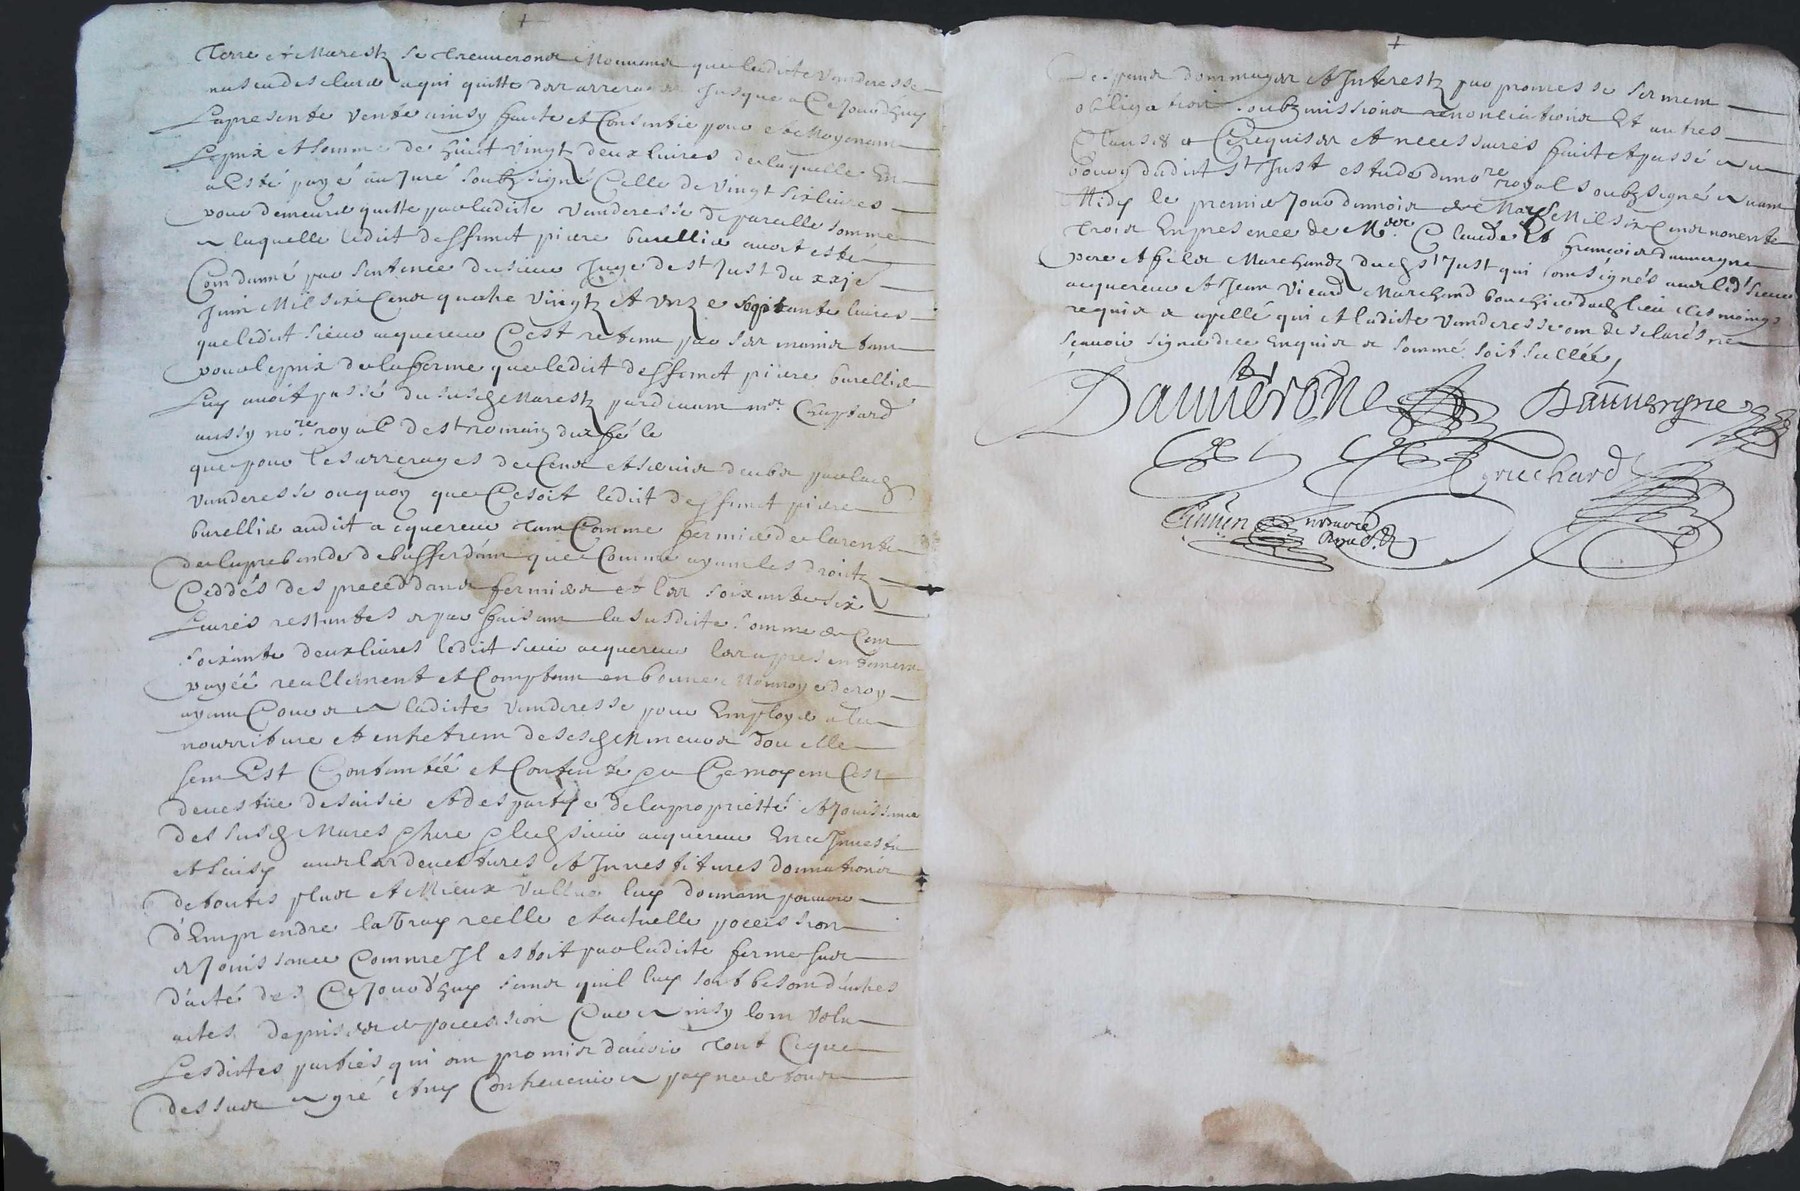 Terre et Marestz se treuveront Mouvoir que ladicte Vanderesse
na sceu desclarer a qui quitte des arrerages Jusque a Ce Jourdhuy
La presente vente ainsy faicte et Consentie pour et Moyenant
Le prix et somme de huict vingtz deux livres de laquelle En
a Esté payé au Juré soubzsigné Celle de vingt six livres
pour demeurer quitte par ladicte vanderesse de pareille somme
a laquelle ledict deffunct pierre burellier avoit esté
Condamné par sentence du sieur Juge de st Just du xxje
Juin Mil six Cens quatre vingtz et unze septante livres
que ledict sieur acquereur C'est retenu par ses mains tant
pour le prix de la ferme que ledict deffunct pierre burellier
Luy avoit passé du susd Marestz pardevant mr Chapsard
aussy nore royal de st romain
que pour les arrerages de Cens et servis deubz par lad
vanderesse ou quoy que Ce soit ledict deffunct pierre
burellier audict acquereur tant Comme fermier de la rente
de la prebande de que Comme ayant les droictz
Ceddés des preceddans fermiers et les soixante six
Livres restantes et par faisant la susdicte somme de Cent
soixante deux livres ledict sieur acquereur les a presentement
payée reallement et Comptant en bonne Monnoye de roy
ayant Cours a ladicte vanderesse pour Employer a la
nourriture et entretien de sesd enmeurs dou elle
sen Est Contantée et Contente par Ce moyen Cest
devestüe desaisie et despartye de la proprietté et Jouissance
des susd Marestz terre led sieur acquereur En a Investu
et saisy avec les devestures et Investitures donnations
de toutes plus et Mieux Vallue luy donnant pouvoir
d'Emprendre la vray reelle et actuelle possession
et Jouissance Comme Il estoit par ladicte ferme sur
datté des Ce Jourd'huy sans quil luy soit besoin d'autres
actes de prise de possession Car ainsy lont volu
Lesdictes parties qui ont promis d'avoir tout Ce que
dessus a gré et ny Contrevenir a payne de tous
despans dommages et Interestz par promesse serment
obligation soubzmissions renonciations Et autres
Clauses a Ce requises et necessaires faict et passé au
bourg dudict st Just estude du nore royal soubzsigné avant
Midy le premier Jour du mois de Mars Mil six Cens nonente
trois En presence de Mre Claude Et françois dauvergne
pere et fils Marchandz dud st Just qui ont signés avec led sieur
acquereur et Jean vicard Marchand boucher dud lieu tesmoings
requis et apellé qui et ladicte vanderesse ont desclarés ne
sçavoir signé de ce Enquis et sommé soit scellée
Dauvergne Dauvergne
Truchard
notaire
Royal